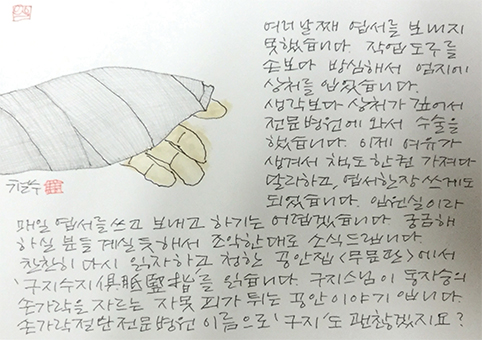 여러 날째 엽서를 보내지
못했습니다. 작업 도구를
손보다 방심해서 엄지에
상처를 입었습니다.
생각보다 상처가 깊어서
전문병원에 와서 수술을
했습니다. 이제 여유가
생겨서 책도 한권 가져다
달라하고, 엽서한장 쓰게도
되었습니다. 입원실이라
매일 엽서를 쓰고 보내고 하기는 어렵겠습니다. 궁금해
하실 분들 계실 듯해서 조악한대로 소식드립니다.
찬찬히 다시 읽자하고 청한 공안집 <무문관>에서
'구지수지俱胝竪指'를 읽습니다. 구지스님이 동자승의
손가락을 자르는 자못 피가 튀는 공안이야기 입니다.
손가락절단전문병원 이름으로 '구지'도 괜찮겠지요?
철수